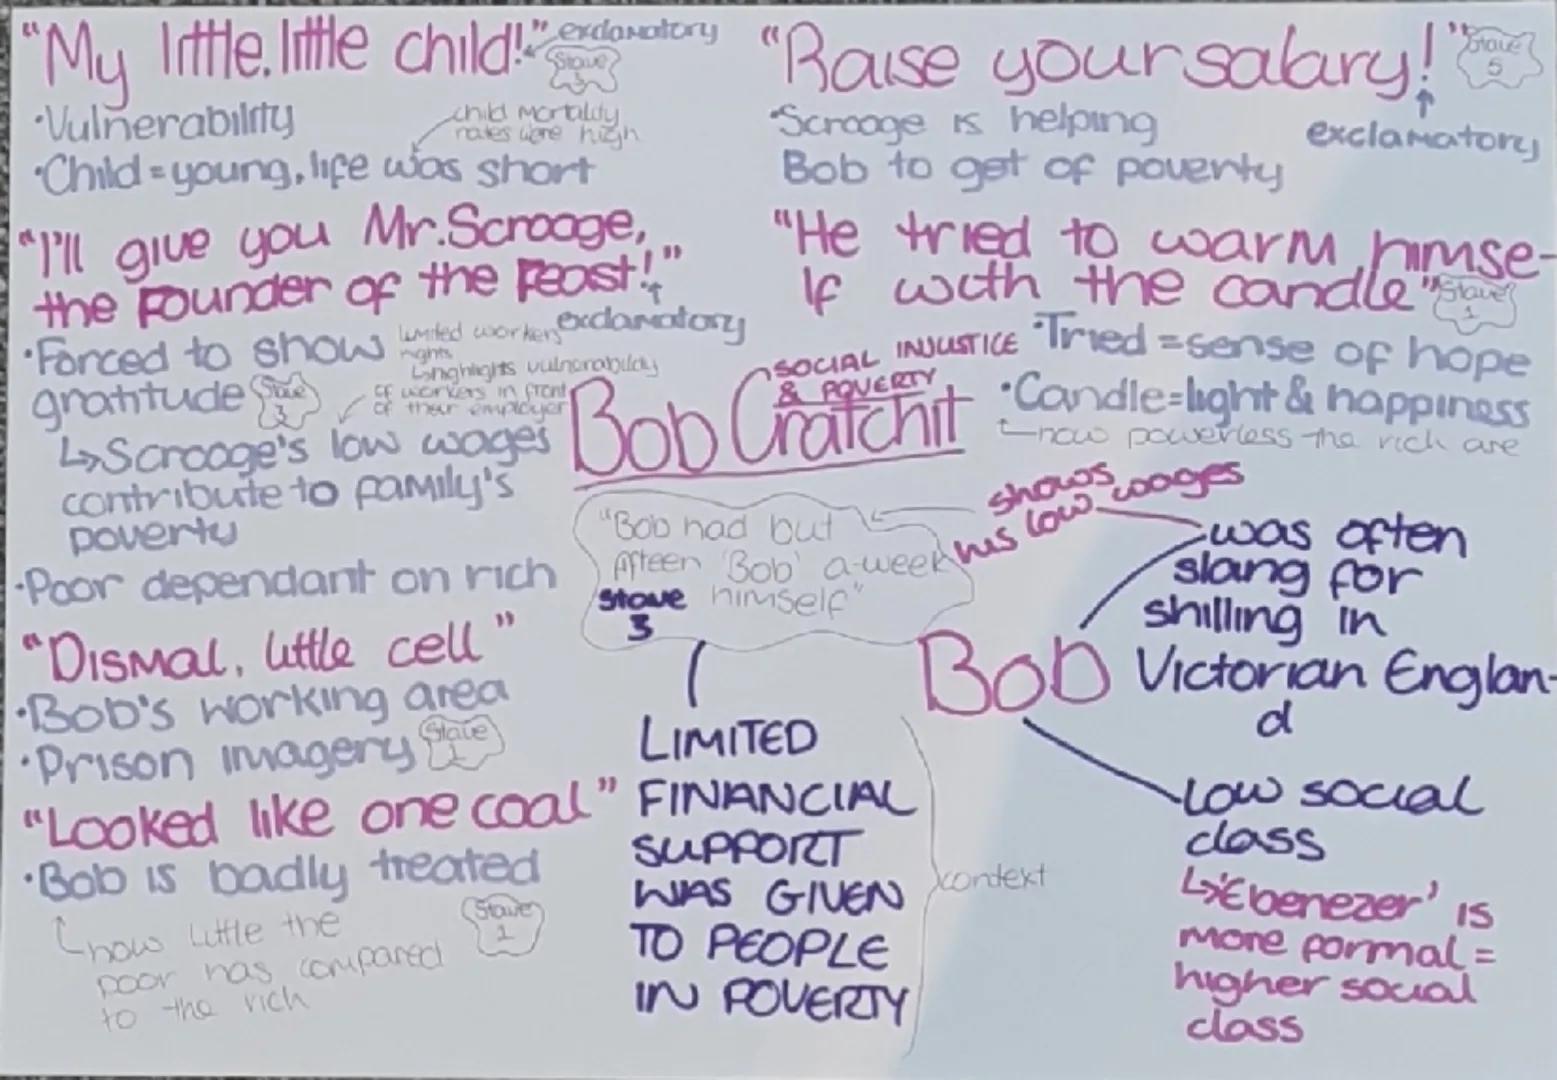 "My little, little child!"
exclamatory
Stave
3
•Vulnerability
child mortality
rates were high
•Child = young, life was short
"I'll give you Mr.Scrooge,
the Founder of the Feast!"
exclamatory
•Forced to show
gratitude
Stave
3
limited workers
rights
↳highlights vulnerability
of workers in front
of their employer
↳Scrooge's low wages
contribute to family's
poverty
•Poor dependant on rich
"Dismal, little cell"
•Bob's working area
•Prison imagery
Stave
1
"Looked like one coal"
•Bob is badly treated
how little the
poor has compared
to the rich
Stave
1
"Raise your salary!"
Stave
5
exclamatory
•Scrooge is helping
Bob to get of poverty
"He tried to warm himse-
lf with the candle"
Stave
1
•Tried = sense of hope
•Candle=light & happiness
how powerless the rich are
SOCIAL INJUSTICE
& POVERTY
Bob Cratchit
"Bob had but
fifteen 'Bob' a-week
himself"
Stave
3
shows
his low wages
LIMITED
FINANCIAL
SUPPORT
WAS GIVEN
TO PEOPLE
IN POVERTY
context
Bob
was often
slang for
shilling in
Victorian Englan-
d
Low social
class
↳'Ebenezer' is
more formal =
higher social
class